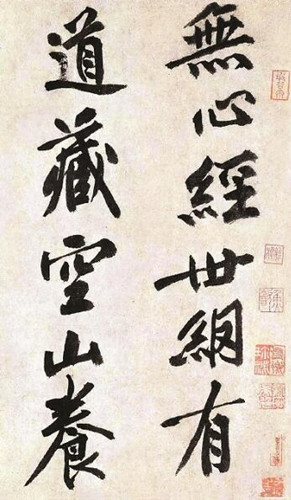 無心經世網有
道藏空山養